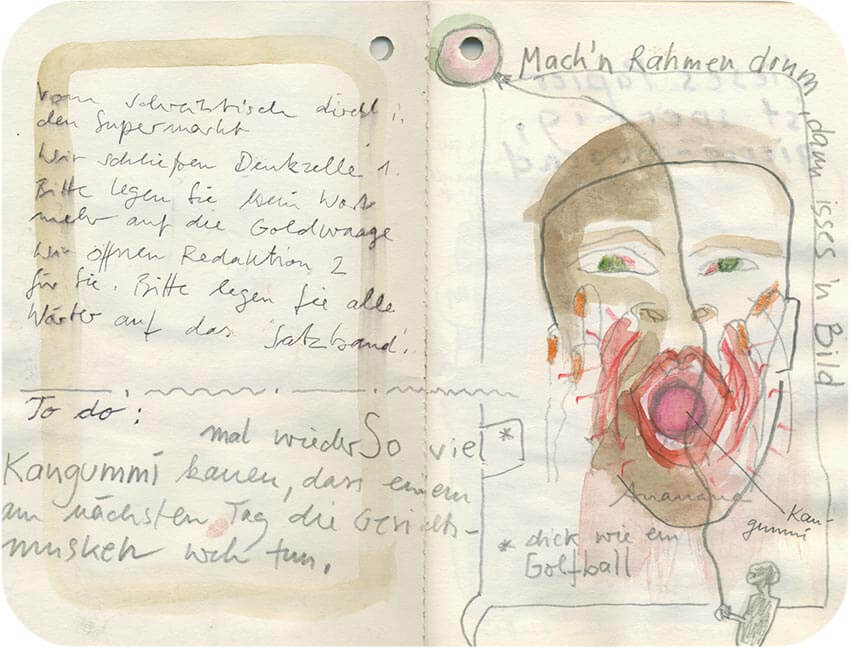 Vom Schreibtisch direkt i.
den Supermarkt
Wir schließen Denkzelle 1.
Bitte legen Sie kein Wort
mehr auf die Goldwaage
Wir öffnen Redaktion 2
für Sie. Bitte legen Sie alle
Wörter auf das Satzband.
To do:
mal wieder So viel *
Kaugummi kauen, dass einem
am nächsten Tag die Gesichts-
muskeln weh tun.
Mach'n Rahmen drum, dann isses 'n Bild
Kau-
gummi
* dick wie ein
Golfball